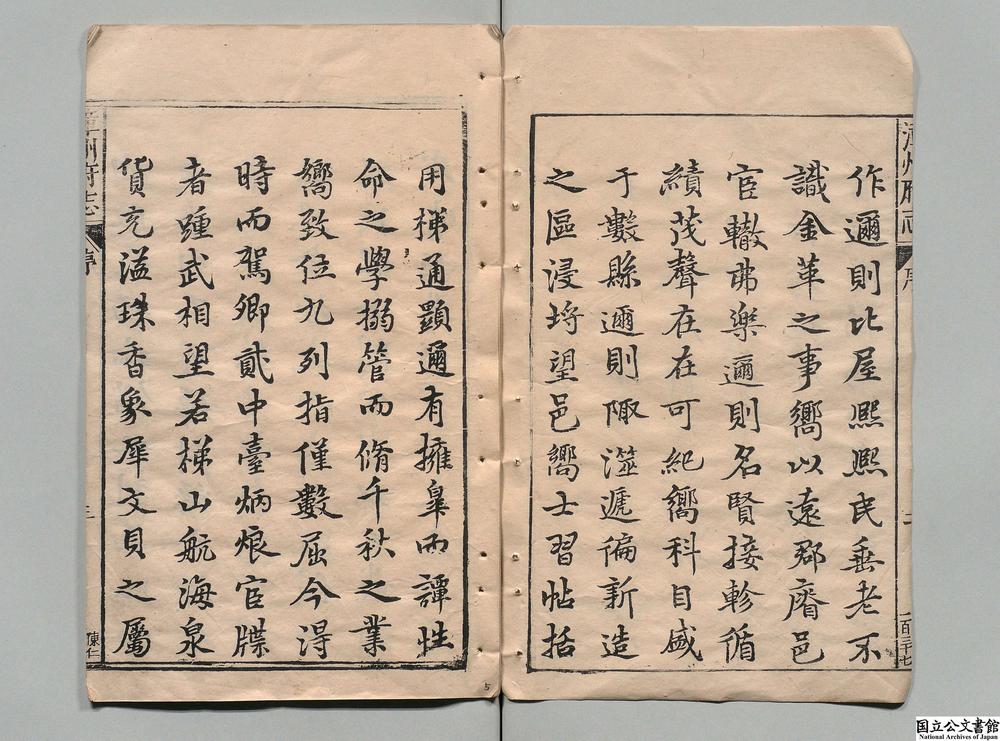 漳州府志
序
二
作邇則比屋熈熈民垂老不
識金革之事嚮以遠郡瘠邑
宦轍弗樂邇則名賢接軫循
績茂聲在在可紀嚮科目盛
于數縣邇則陬澨遞徧新造
之區浸埒望邑嚮士習帖括
用梯通顯邇有擁皐而譚性
命之學搦管而脩千秋之業
嚮致位九列指僅數屈今淂
時而駕卿貳中臺炳烺官牒
者踵武相望若梯山航海泉
貨充溢珠香象犀文貝之屬
漳州府志
序
三
陳仁
国立公文書館
National Archives of Japan